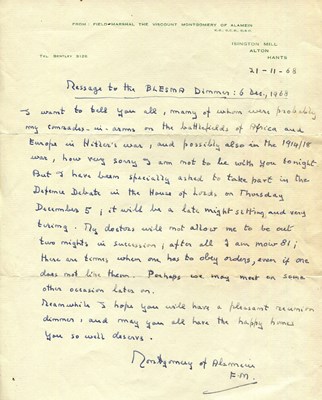 FROM: FIELD-MARSHAL THE VISCOUNT MONTGOMERY OF ALAMEIN
K.G., G.C.B., D.S.O.
ISINGTON MILL
ALTON
HANTS
TEL. BENTLEY 3126
21-11-68
Message to the BLESMA Dinner: 6 Dec, 1968
I want to tell you all, many of whom were probably
my comrades-in-arms on the battlefields of Africa and
Europe in Hitler's war, and possibly also in the 1914/18
war, how very sorry I am not to be with you tonight.
But I have been specially asked to take part in the
Defence Debate in the House of Lords on Thursday
December 5; it will be a late night sitting and very
tiring. My doctors will not allow me to be out
two nights in succession; after all I am now 81;
there are times when one has to obey orders, even if one
does not like them. Perhaps we may meet on some
other occasion later on.
Meanwhile I hope you will have a pleasant reunion
dinner; and may you all have the happy homes
you so well deserve.
Montgomery of Alamein
F.M.